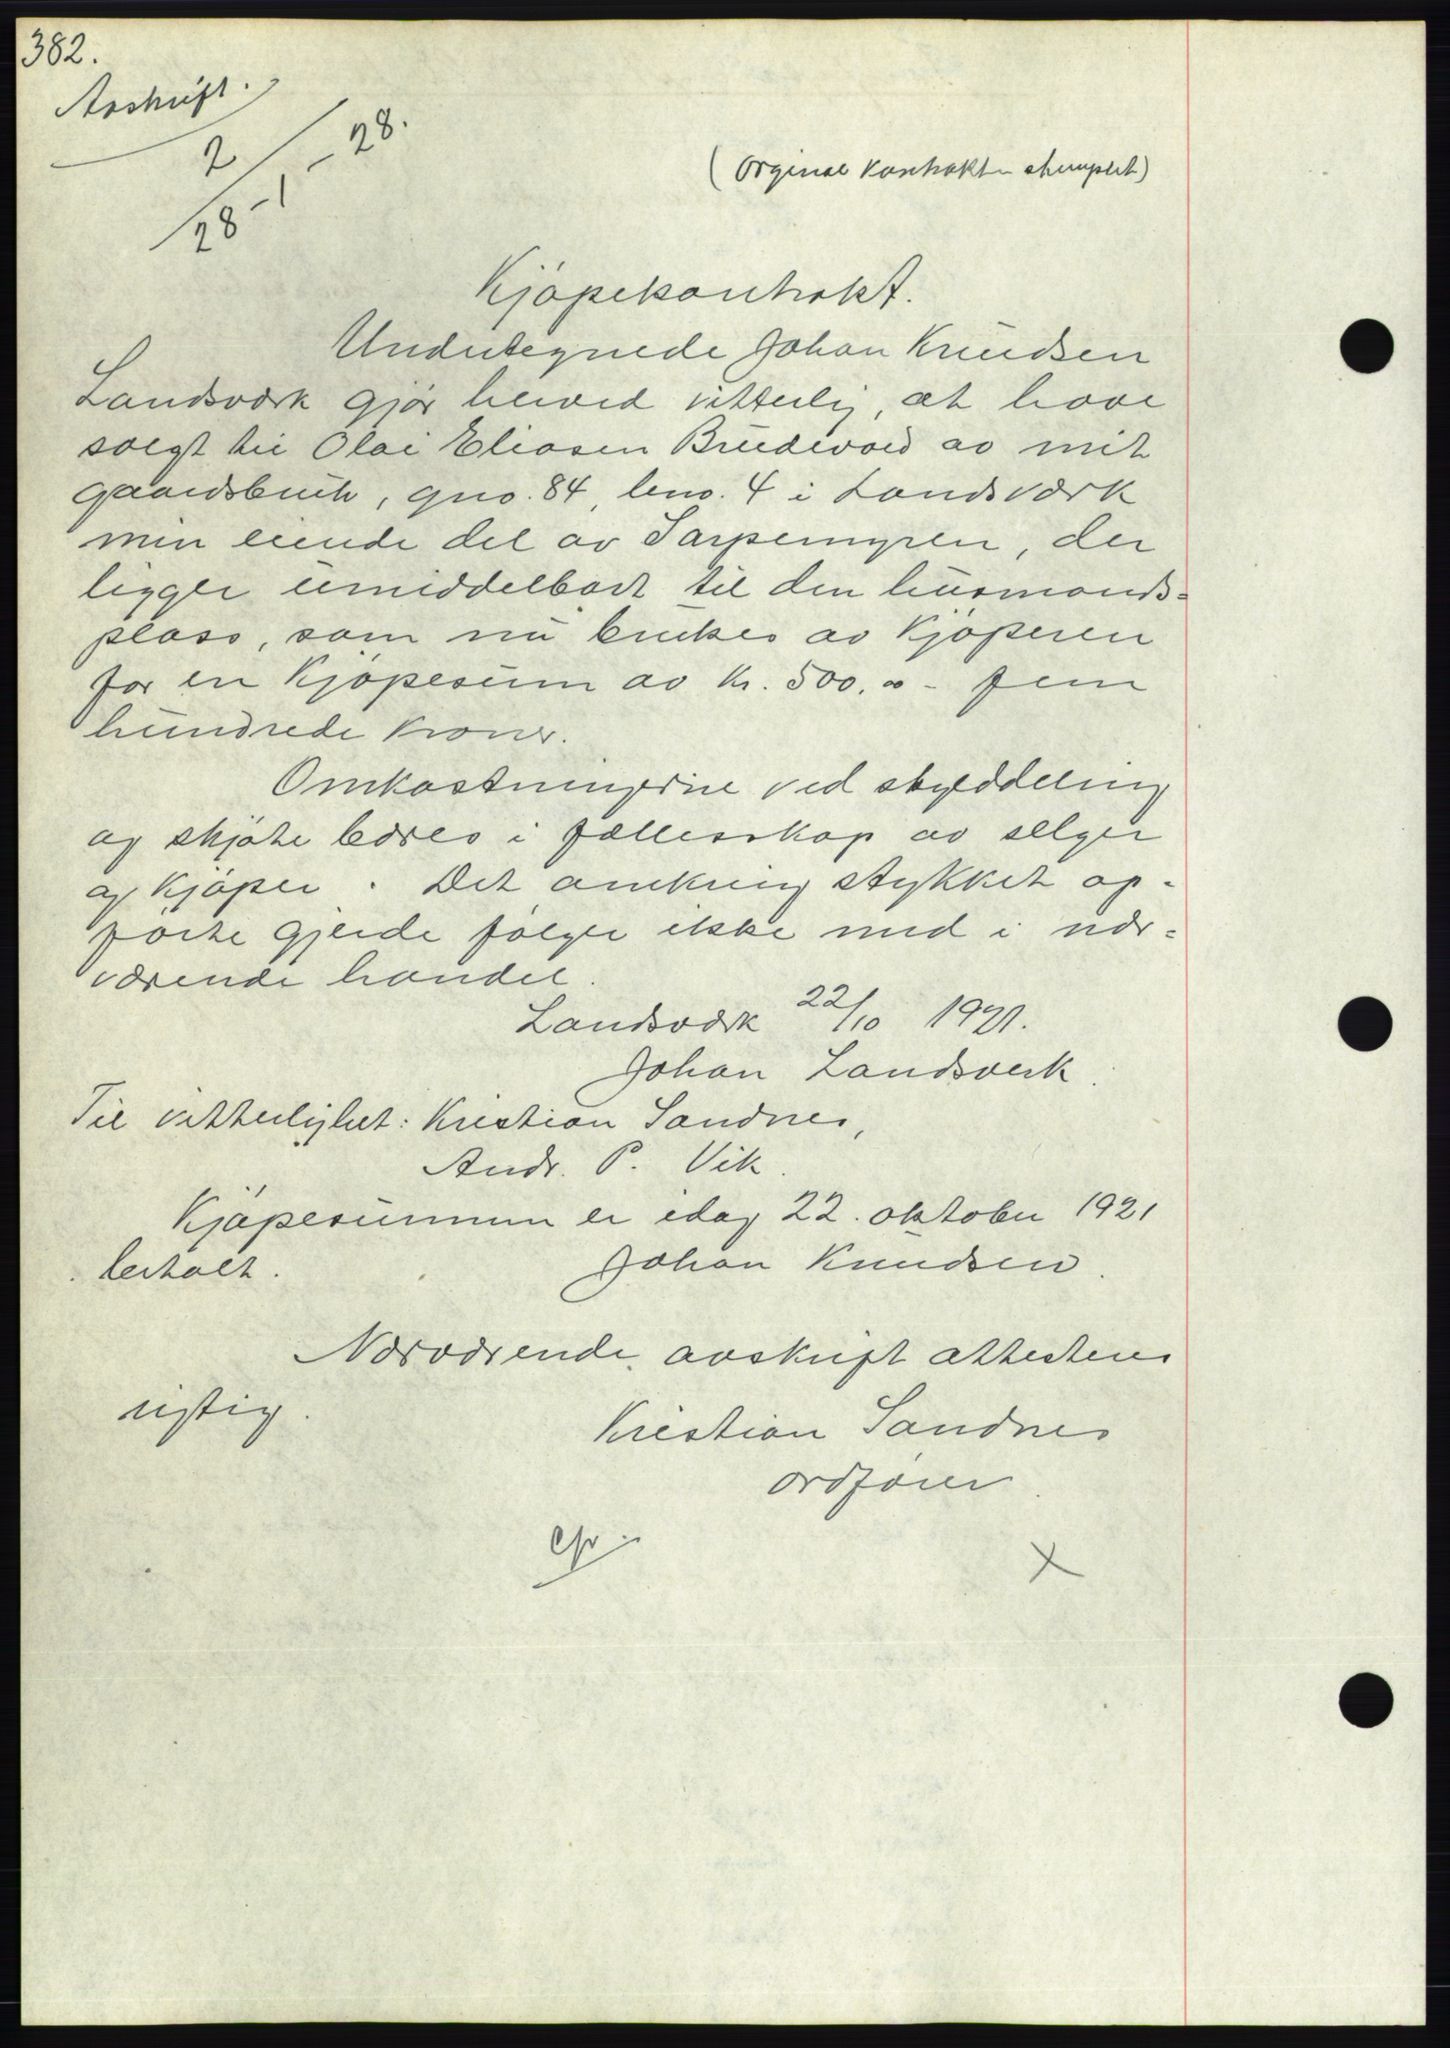 382.
Avskrift.
2/28-1-28.
(Orginal kontrakten stemplet)
Kjøpekontrakt.
Undertegnede Johan Knudsen
Landsværk gjør herved vitterlig, at have
solgt til Olai Eliasen Brudevold av mit
gaardsbruk, gno. 84, bno. 4 i Landsværk
min eiende del av Sarpemyren, der
ligger umiddelbart til den husmands-
plass, som nu brukes av kjøperen
for en kjøpesum av kr. 500.00 - fem
hundrede kroner.
Omkostningerne ved skylddeling
og skjøte bæres i fællesskap av selger
og kjøper. Det omkring stykket op-
førte gjerde følger ikke med i nær-
værende handel.
Landsværk 22/10 1921.
Johan Landsverk.
Til vitterlighet: Kristian Sandnes,
Andr. P. Vik.
Kjøpesummen er idag 22. oktober 1921
betalt.
Johan Knudsen.
Nærværende avskrift attesteres
rigtig.
Kristian Sandnes
ordfører.